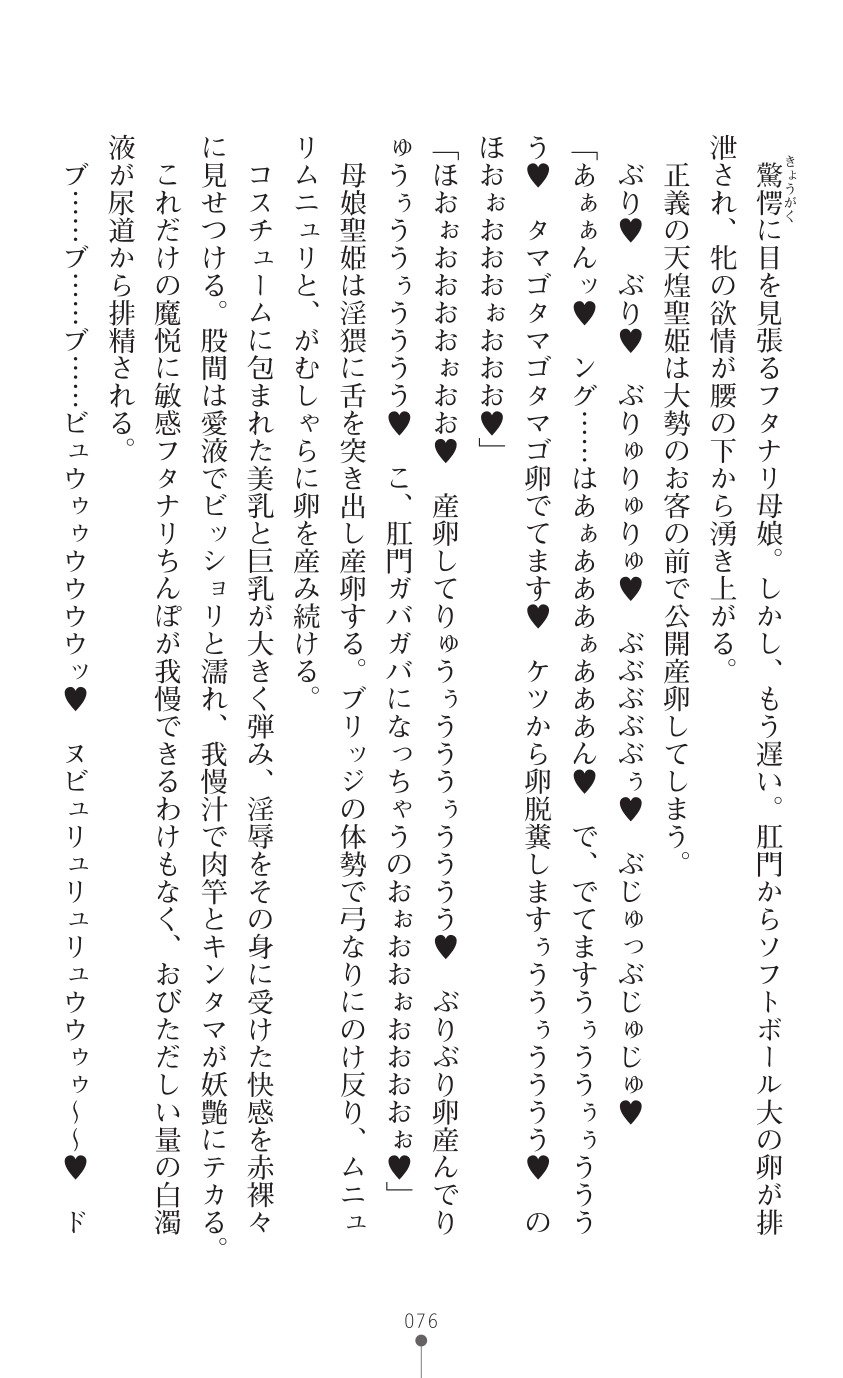 驚愕に目を見張るフタナリ母娘。しかし、もう遅い。肛門からソフトボール大の卵が排
きょうがく
泄され、牝の欲情が腰の下から湧き上がる。
正義の天煌聖姫は大勢のお客の前で公開産卵してしまう。
ぶり♥　ぶり♥　ぶりゅりゅりゅ♥　ぶぶぶぶぶぅ♥　ぶじゅっぶじゅじゅ♥
「あぁぁんッ♥　ング……はあぁあああぁあああん♥　で、でてますうぅううぅぅううう
う♥　タマゴタマゴタマゴ卵でてます♥　ケツから卵脱糞しますぅううぅうううう♥　の
ほおぉおおおぉおおお♥」
「ほおぉおおおおぉおお♥　産卵してりゅうぅうううぅうううう♥　ぶりぶり卵産んでり
ゅうぅううぅうううう♥　こ、肛門ガバガバになっちゃうのおぉおおぉおおおおぉ♥」
母娘聖姫は淫猥に舌を突き出し産卵する。ブリッジの体勢で弓なりにのけ反り、ムニュ
リムニュリと、がむしゃらに卵を産み続ける。
コスチュームに包まれた美乳と巨乳が大きく弾み、淫辱をその身に受けた快感を赤裸々
に見せつける。股間は愛液でビッショリと濡れ、我慢汁で肉竿とキンタマが妖艶にテカる。
これだけの魔悦に敏感フタナリちんぽが我慢できるわけもなく、おびただしい量の白濁
液が尿道から排精される。
ブ……ブ……ブ……ビュウゥゥウウウウッ♥　ヌビュリュリュリュウウゥゥ～～♥　ド
076